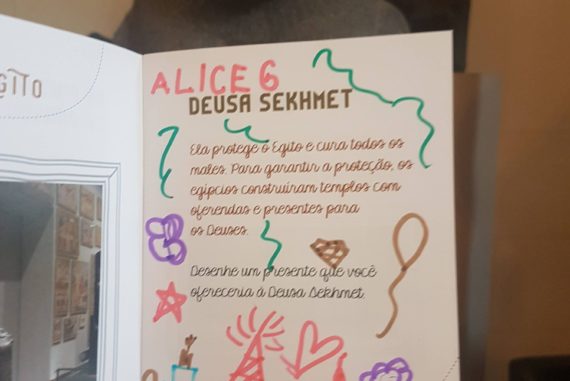 GITO
ALICE 6
DEUSA SEKHMET
Ela protege o Egito e cura todos os
males. Para garantir a proteção, os
egípcios construíram templos com
oferendas e presentes para
os Deuses.
Desenhe um presente que você
ofereceria à Deusa Sekhmet.